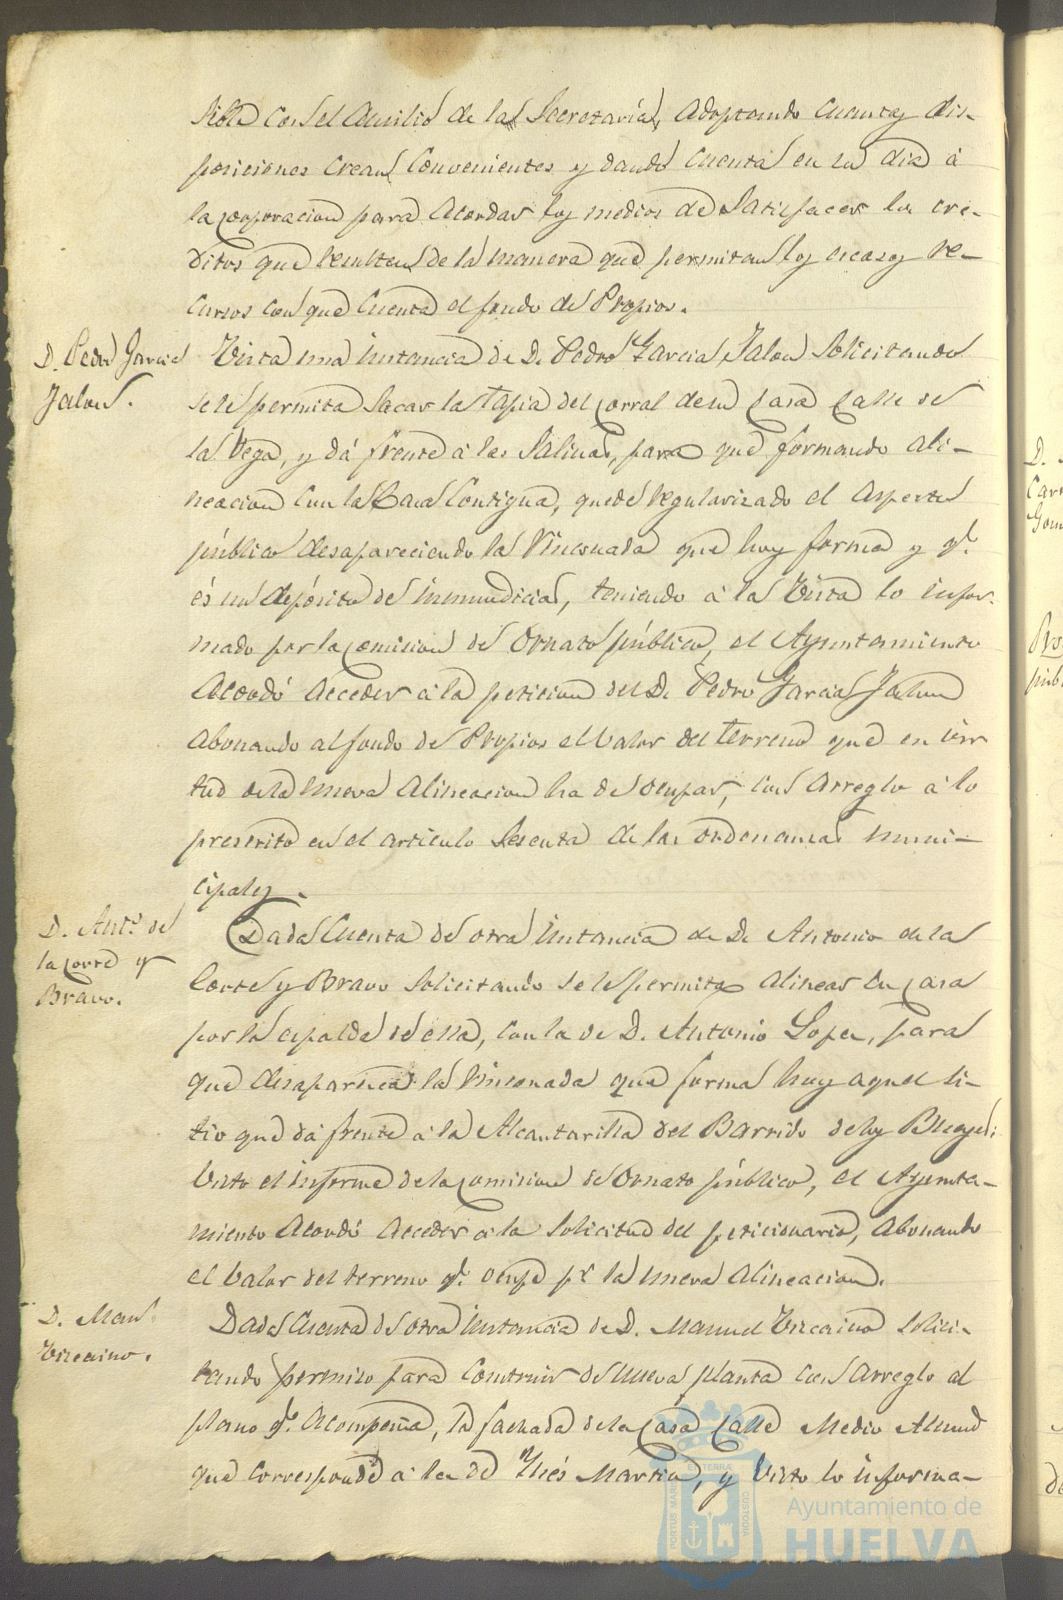 sible con el Auxilio de la Secretaría, Adoptando Cuantas dis-
posiciones crean Convenientes y dando Cuenta en su dia á
la corporacion para Acordar los medios de Satisfacer los cre-
ditos que resulten de la manera que permitan los escasos re-
cursos con que Cuenta el fondo de Propios.
D. Pedro Garcia
Jalon.
Vista una instancia de D. Pedro Garcia Jalon Solicitando
se le permita Sacar la tapia del corral de su casa calle de
la Vega, y dá frente á las Salinas, para que formando ali-
neacion con la Casa Contigua, quede regularizado el Aspecto
público desapareciendo la rinconada que hoy forma y q.e
és un depósito de inmundicias, teniendo á la Vista lo infor-
mado por la comision de Ornato público, el Ayuntamiento
Acordó Acceder á la peticion del D. Pedro Garcia Jalon
Abonando al fondo de Propios el Valor del terreno que en vir-
tud de la nueva Alineacion ha de ocupar, con Arreglo á lo
prescrito en el articulo Sesenta de las ordenanzas muni-
cipales.
D. Ant.o de
la corte y
Bravo.
Dada Cuenta de otra instancia de D. Antonio de la
Corte y Bravo Solicitando se le permita Alinear su casa
por la espalda de ella, con la de D. Antonio Lopez, para
que desaparezca la rinconada que forma hoy aquel si-
tio que dá frente á la Alcantarilla del Barrido de los
Visto el informe de la comision de Ornato público, el Ayunta-
miento Acordó Acceder á la Solicitud del peticionario, Abonando
el Valor del terreno q.e ocupe p.r la nueva Alineacion.
D. Man.l
Vizcaino.
Dada Cuenta de otra instancia de D. Manuel Vizcaino Solici-
tando permiso para Construir de nueva planta con Arreglo al
plano q.e Acompaña, la fachada de la casa calle Medio Almud
que corresponde á la de Ynés Martin, y Visto lo informa-
D.
Car
Gom
Pro
púb
de
PORTUS MARIS ET TERRÆ CUSTODIA
Ayuntamiento de
HUELVA